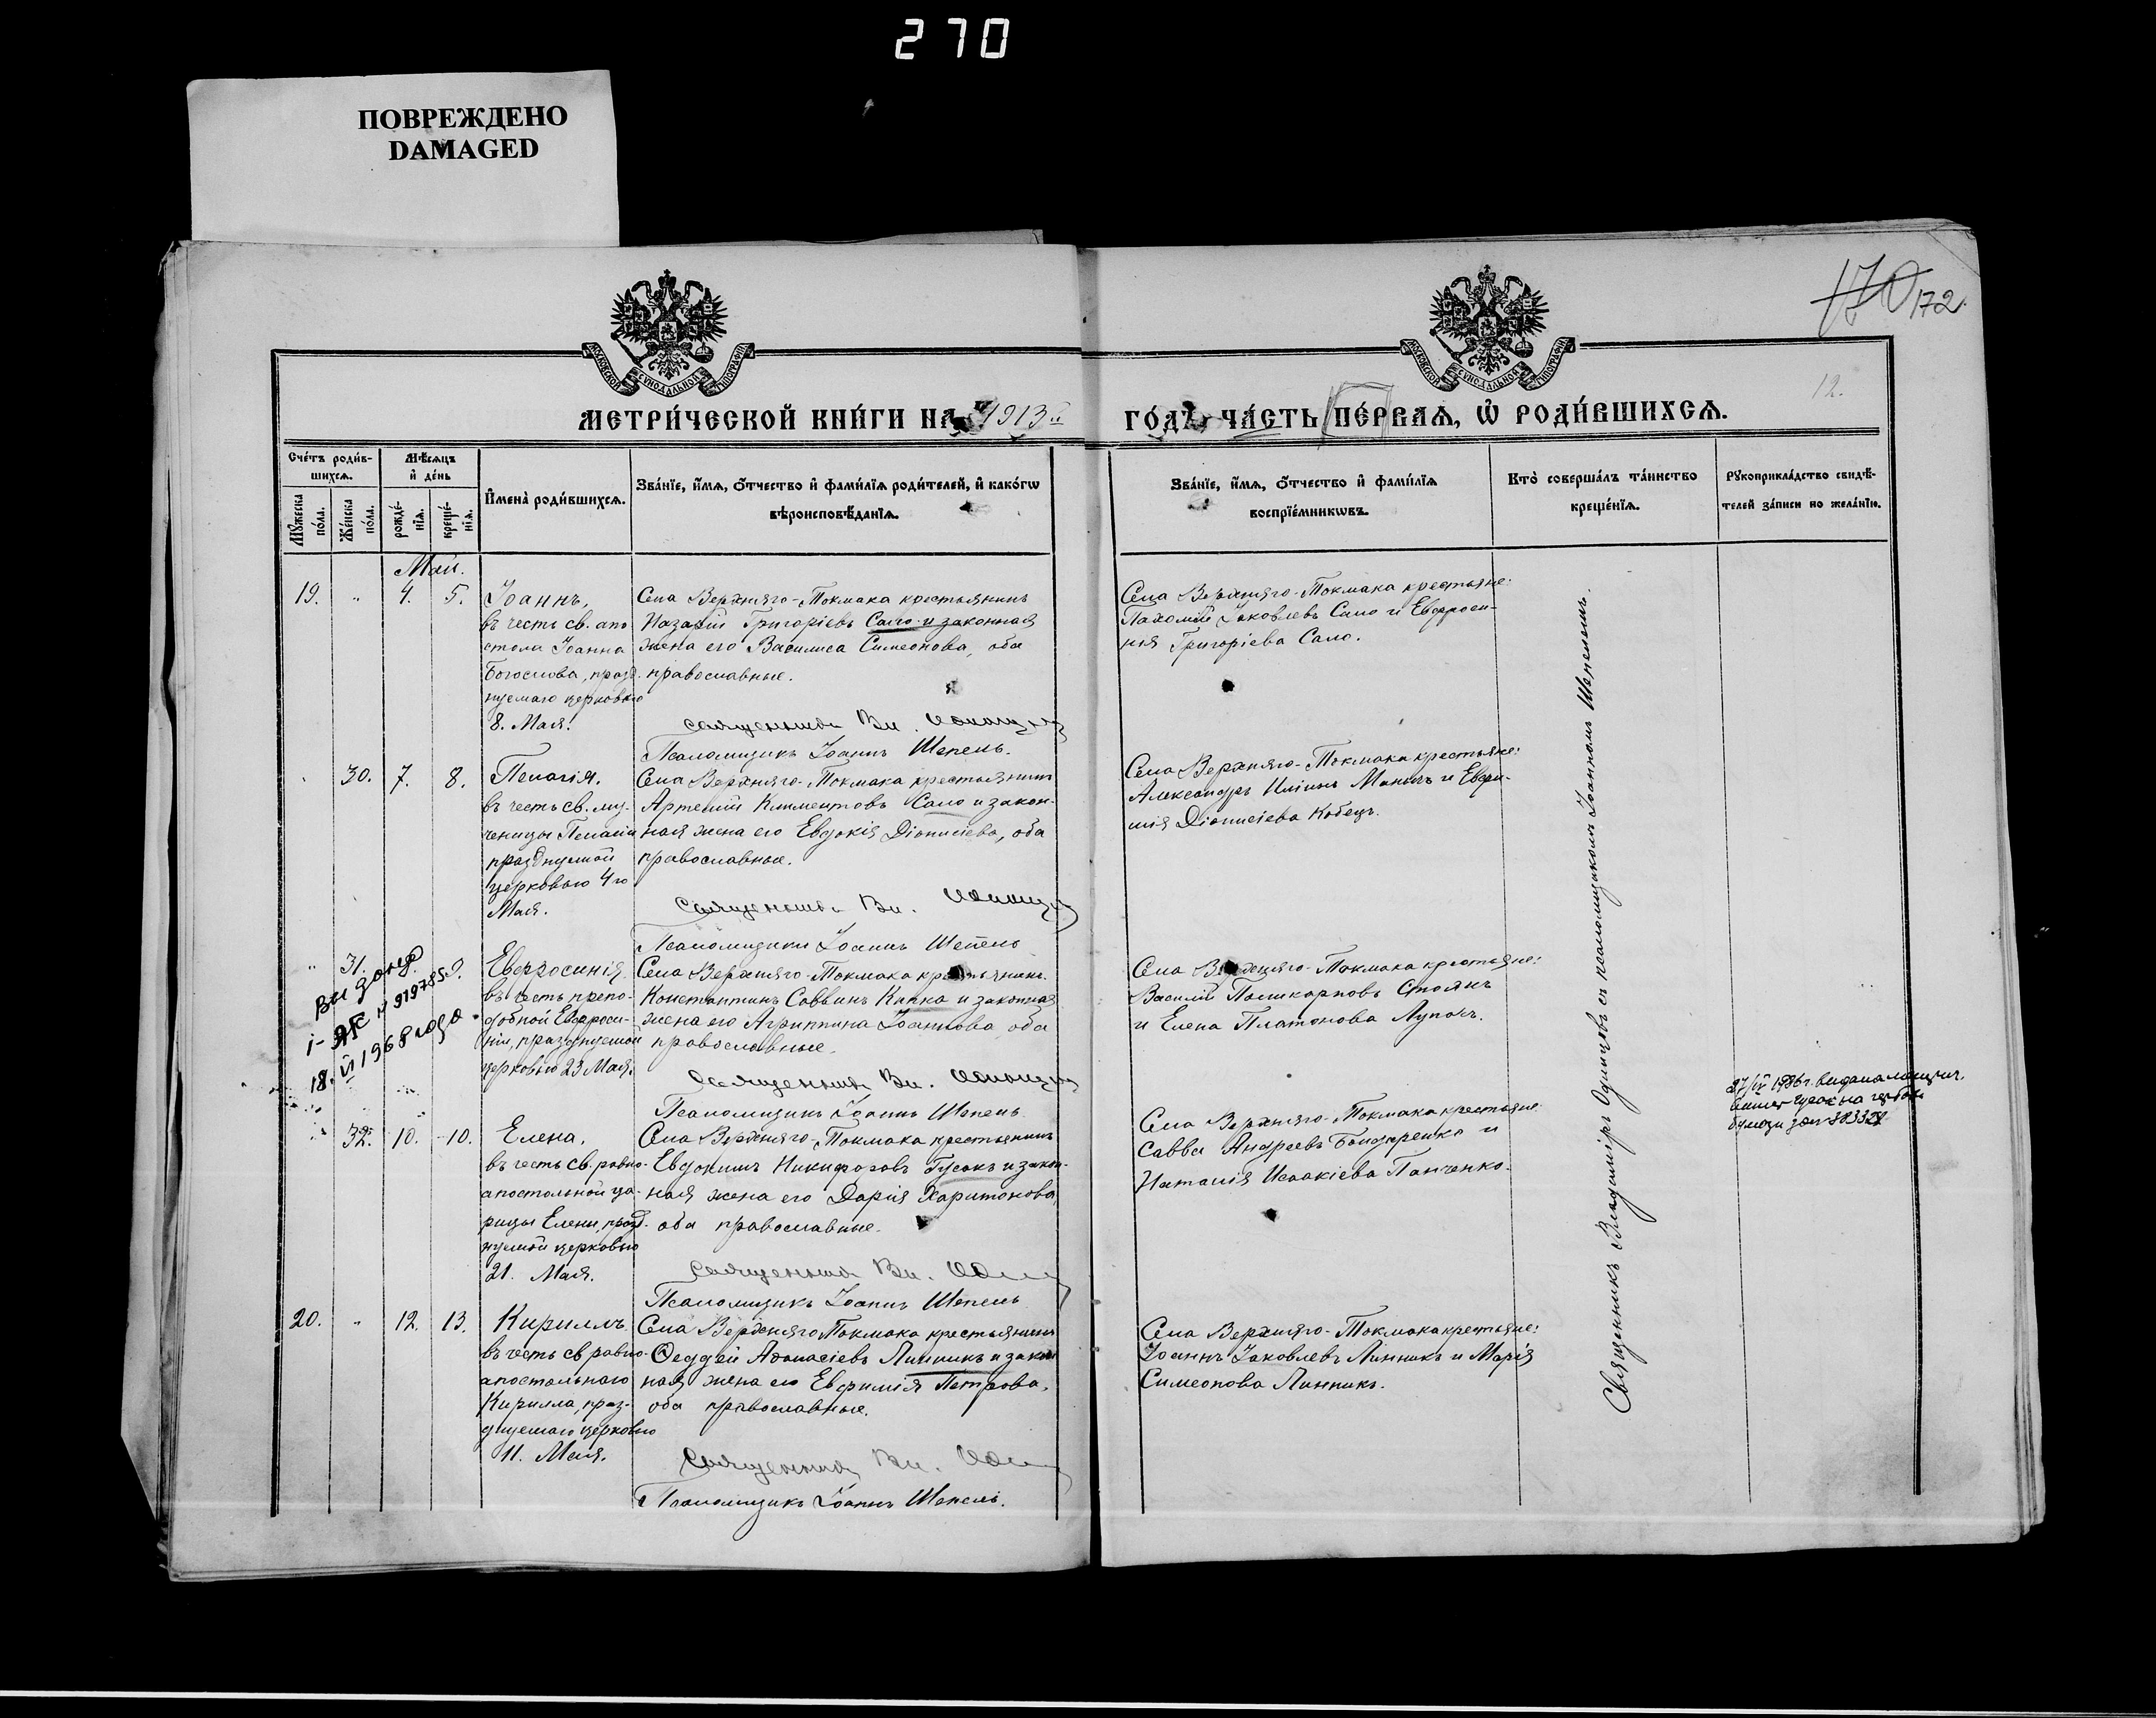 270
ПОВРЕЖДЕНО
DAMAGED
170 172.
12.
МОСКОВСКОЙ СѴНОДАЛЬНОЙ ТИПОГРАФІИ
МОСКОВСКОЙ СѴНОДАЛЬНОЙ ТИПОГРАФІИ
МЕТРИ́ЧЕСКОЙ КНИ́ГИ НА 1913й ГО́ДЪ, ЧА́СТЬ ПЕ́РВАѦ, Ѽ РОДИ́ВШИХСѦ.
Сче́тъ роди́в-
шихсѧ.
Мꙋ́жеска по́ла.
Же́нска по́ла.
Мѣ́сѧцъ
и҆ де́нь
рожде́-
нїѧ.
креще́-
нїѧ.
И҆мена̀ роди́вшихсѧ.
Зва́нїе, и҆́мѧ, ѻ҆́тчество и҆ фами́лїѧ роди́телей, и҆ како́гѡ
вѣроисповѣ́данїѧ.
Зва́нїе, и҆́мѧ, ѻ҆́тчество и҆ фами́лїѧ
воспрїе́мникѡвъ.
Кто̀ соверша́лъ та́инство
креще́нїѧ.
Рꙋкоприкла́дство свидѣ́-
телей за́писи по жела́нїю.
Май.
19. " 4. 5.
Іоаннъ,
въ честь св. апо
стола Іоанна
Богослова, празд.
нуемаго церковью
8. Мая.
Села Верхняго-Токмака крестьянинъ
Назарій Григоріевъ Сало и законная
жена его Василиса Симеонова, оба
православные.
Священникъ Вл.
Псаломщикъ Іоаннъ Шепель.
Села Верхняго-Токмака крестьяне:
Пахомій Іаковлевъ Сало и Евфроси-
нія Григоріева Сало.
30. 7. 8.
Пелагія.
въ честь св. му-
ченицы Пелагіи
празднуемой
церковью 4го
Мая.
Села Верхняго-Токмака крестьянинъ
Артемій Климентовъ Сало и закон-
ная жена его Евдокія Діонисіева, оба
православные.
Священникъ Вл.
Псаломщикъ Іоаннъ Шепель
Села Верхняго-Токмака крестьяне:
Александръ Иліинъ и Евфи-
мія Діонисіева Кобецъ.
" 31.
1968 года
Евфросинія.
въ честь препо-
добной Евфроси-
ніи, празднуемой
церковью 23 Мая.
Села Верхняго-Токмака крестьянинъ
Константинъ Саввинъ Капка и законная
жена его Агриппина Іоаннова, оба
православные.
Священникъ Вл.
Псаломщикъ Іоаннъ Шепель
Села Верхняго-Токмака крестьяне:
Василій Поликарповъ Стоянъ
и Елена Платонова
32. 10. 10.
Елена.
въ честь св. равно-
апостольной ца-
рицы Елены, празд-
нуемой церковью
21. Мая.
Села Верхняго-Токмака крестьянинъ
Евдокимъ Никифоровъ Гусакъ и закон-
ная жена его Дарія Харитонова,
оба православные.
Священникъ Вл.
Псаломщикъ Іоаннъ Шепель
Села Верхняго-Токмака крестьяне
Савва Андреевъ Бондаренко и
Наталія Исаакіева Панченко.
20. " 12. 13.
Кириллъ.
въ честь св равно-
апостольнаго
Кирилла, праз-
днуемаго церковью
11. Мая.
Села Верхняго Токмака крестьянинъ
Ѳаддей Аѳанасіевъ Линникъ и закон
ная жена его Евфимія Петрова,
оба православные.
Священникъ Вл.
Псаломщикъ Іоаннъ Шепель.
Села Верхняго-Токмака крестьяне:
Іоаннъ Іаковлевъ Линникъ и Марія
Симеонова Линникъ.
Священникъ Владиміръ Одинцовъ съ псаломщикомъ Іоанномъ Шепелемъ.